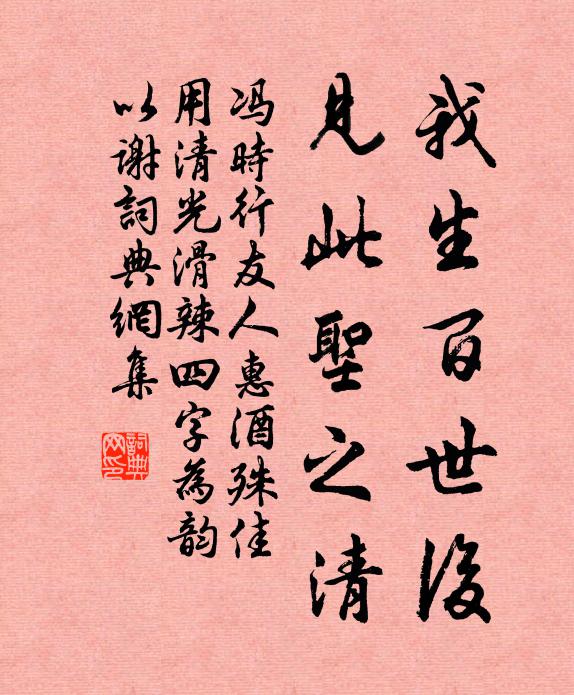 我生百世後
見此聖之清
冯時行友人惠酒殊佳
用清光滑辣四字為韵
以谢詞典網集
詞典
网印